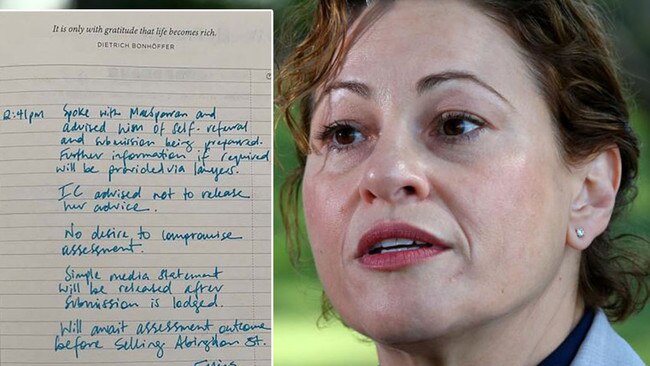 It is only with gratitude that life becomes rich.
DIETRICH BONHÖFFER
2:41pm Spoke with MacSporran and
advised him of self-referral
and submission being prepared.
Further information if required
will be provided via lawyers.
IC advised not to release
her advice.
No desire to compromise
assessment.
Simple media statement
will be released after
submission is lodged.
Will await assessment outcome
before selling Abingdon St.